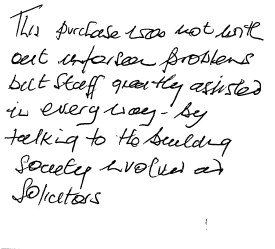 This purchase was not with
out unforseen problems
but staff greatly assisted
in every way - by
talking to the building
society involved and
Solicitors